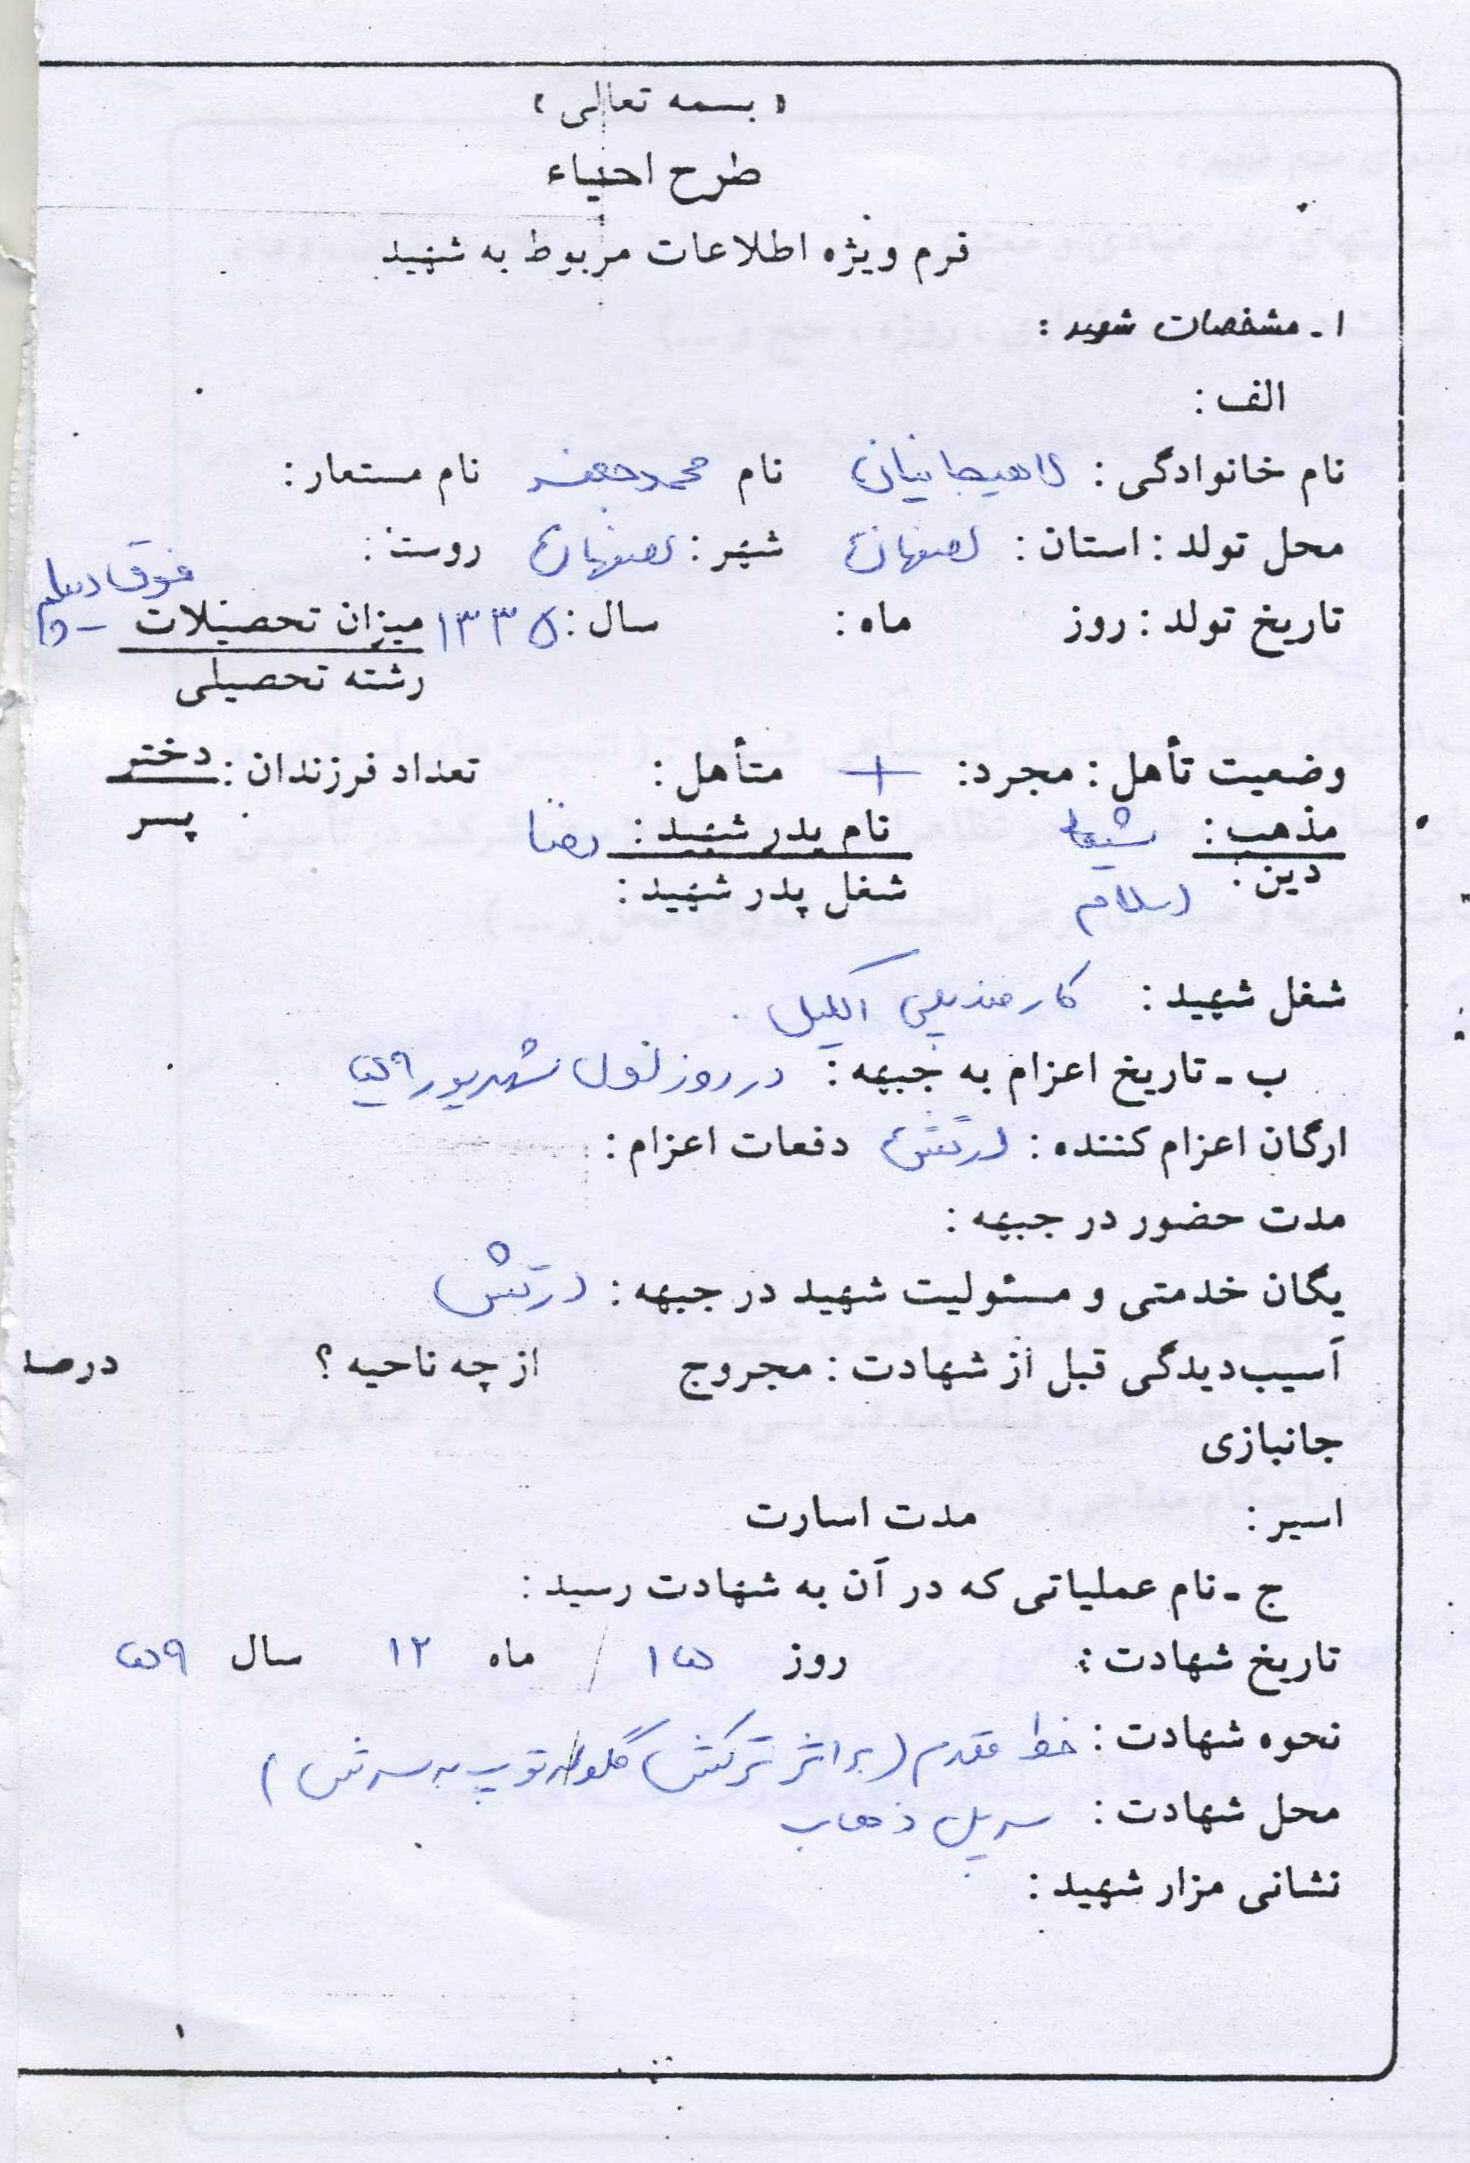 « بسمه تعالی »
طرح احیاء
فرم ویژه اطلاعات مربوط به شهید
۱ـ مشخصات شهید :
الف :
نام خانوادگی : لاهیجانیان نام محمدجعفر نام مستعار :
محل تولد : استان : اصفهان شهر : اصفهان روستا :
تاریخ تولد : روز ماه : سال : ۱۳۳۵ میزان تحصیلات فوق دیپلم
رشته تحصیلی
وضعیت تأهل : مجرد : + متأهل : تعداد فرزندان : دختر
پسر
مذهب : شیعه نام پدر شهید : رضا
دین : اسلام شغل پدر شهید :
شغل شهید : کارمند پلی اکریل .
ب ـ تاریخ اعزام به جبهه : در روز اول شهریور ۵۹
ارگان اعزام کننده : ارتش دفعات اعزام :
مدت حضور در جبهه :
یگان خدمتی و مسئولیت شهید در جبهه : ارتش
آسیب‌دیدگی قبل از شهادت : مجروح از چه ناحیه ؟ درصد
جانبازی
اسیر : مدت اسارت
ج ـ نام عملیاتی که در آن به شهادت رسید :
تاریخ شهادت : روز ۱۵ / ماه ۱۲ سال ۵۹
نحوه شهادت : خط مقدم (بر اثر ترکش گلوله توپ به سرش )
محل شهادت : سرپل ذهاب
نشانی مزار شهید :
۱